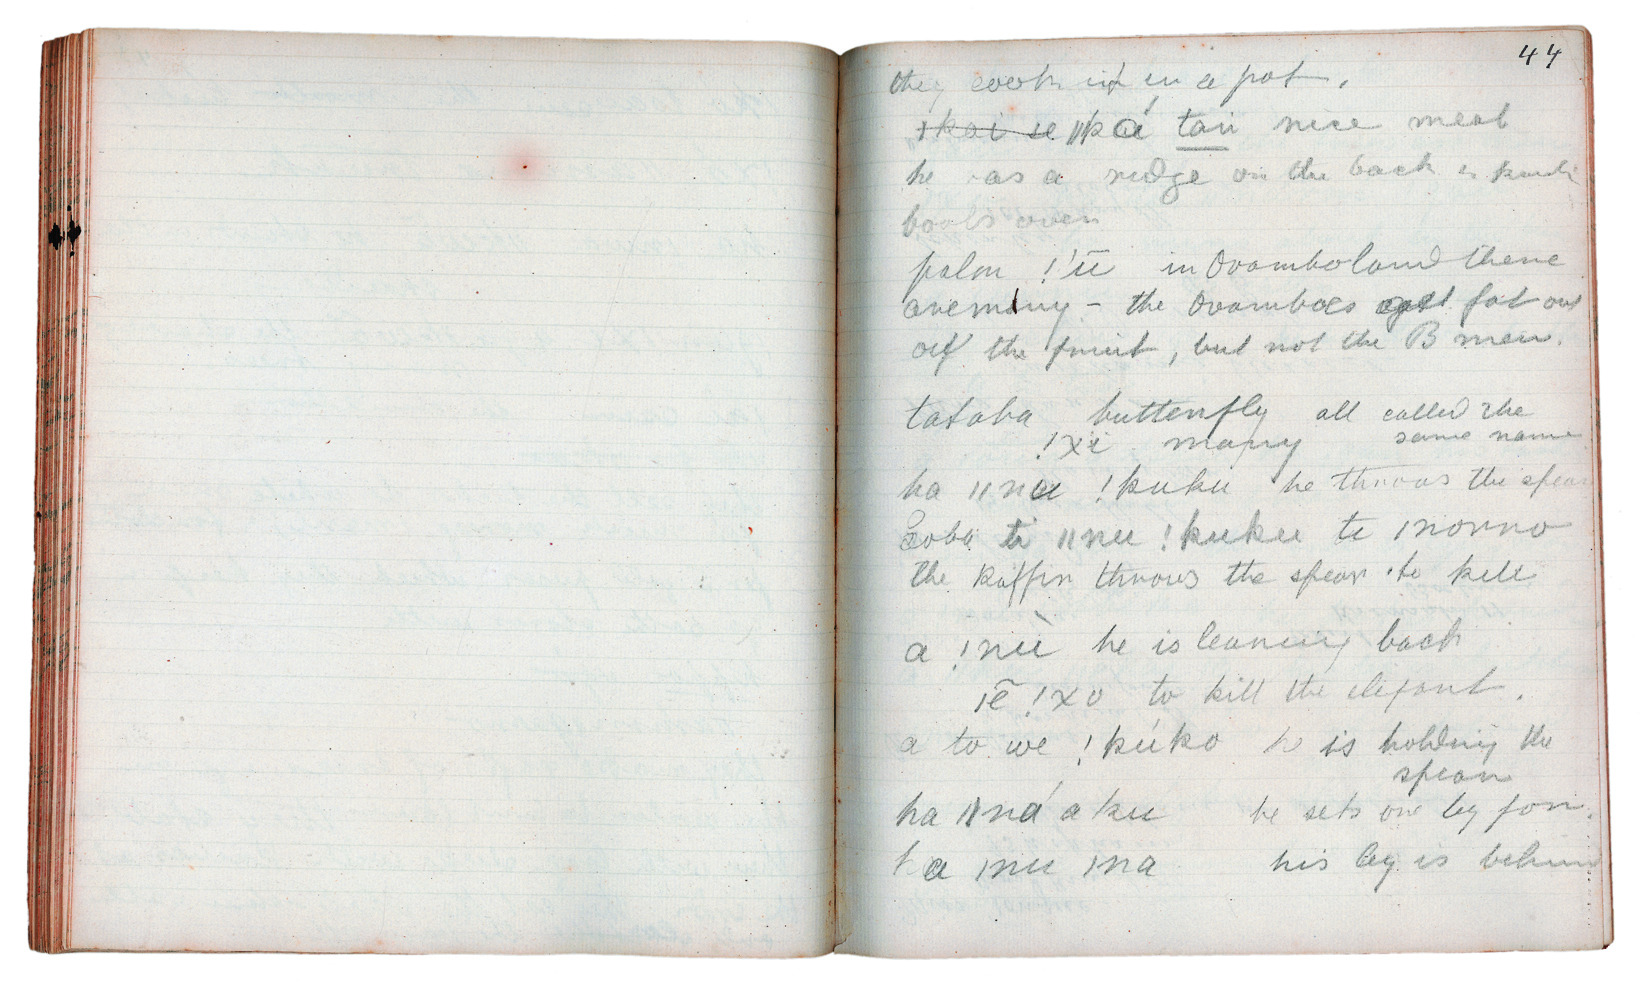 44
they cook it in a pot.
ǀkai se ǁká tau nice meat
he has a ridge on the back
boils over
palm !'ū in Ovamboland there
are many – the Ovamboes get fat out
of the fruit, but not the B men.
tataba butterfly all called the
!xi many same name
ha ǁna !kuku he throws the spear
Goba ti ǁnu !kuku te ǀnorno
the Kaffir throws the spear to kill
a !nù he is leaning back
ǀē !xo to kill the elefant.
a to we !kúko he is holding the
spear
ha ǁná a ku he sets one leg for.
ha ǀnu ǀna his leg is behind